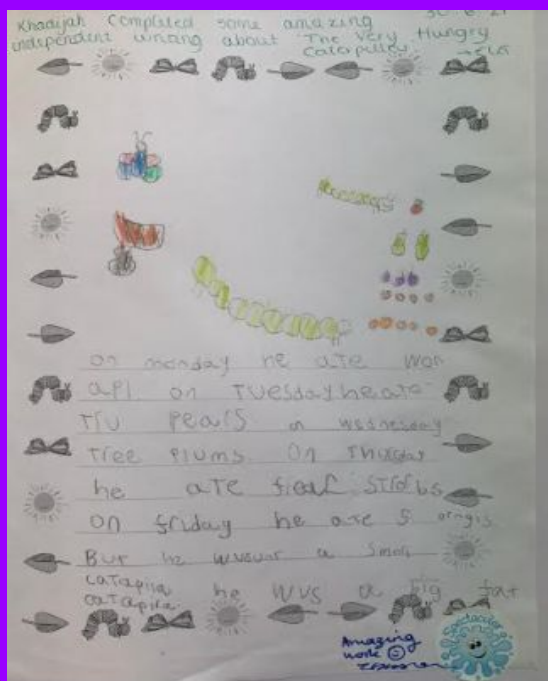 Khadijah completed some amazing
independent writing about "The Very Hungry
Caterpillar.
on monday he ate won
apl on Tuesday he ate
Tiu pears on wednesday
Tree plums. On Thursday
he ate fear strorbs
on friday he ate 5 orngis
But he a small
catapila he wus a big fat
catapila
Amazing
work
Spectacular